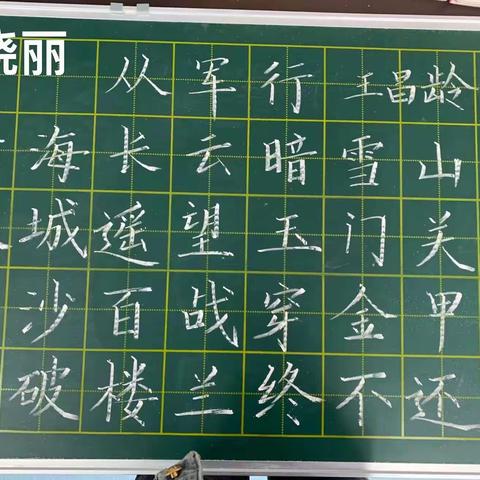 晓丽
从军行 王昌龄
海长云暗雪山
城遥望玉门关
沙百战穿金甲
破楼兰终不还